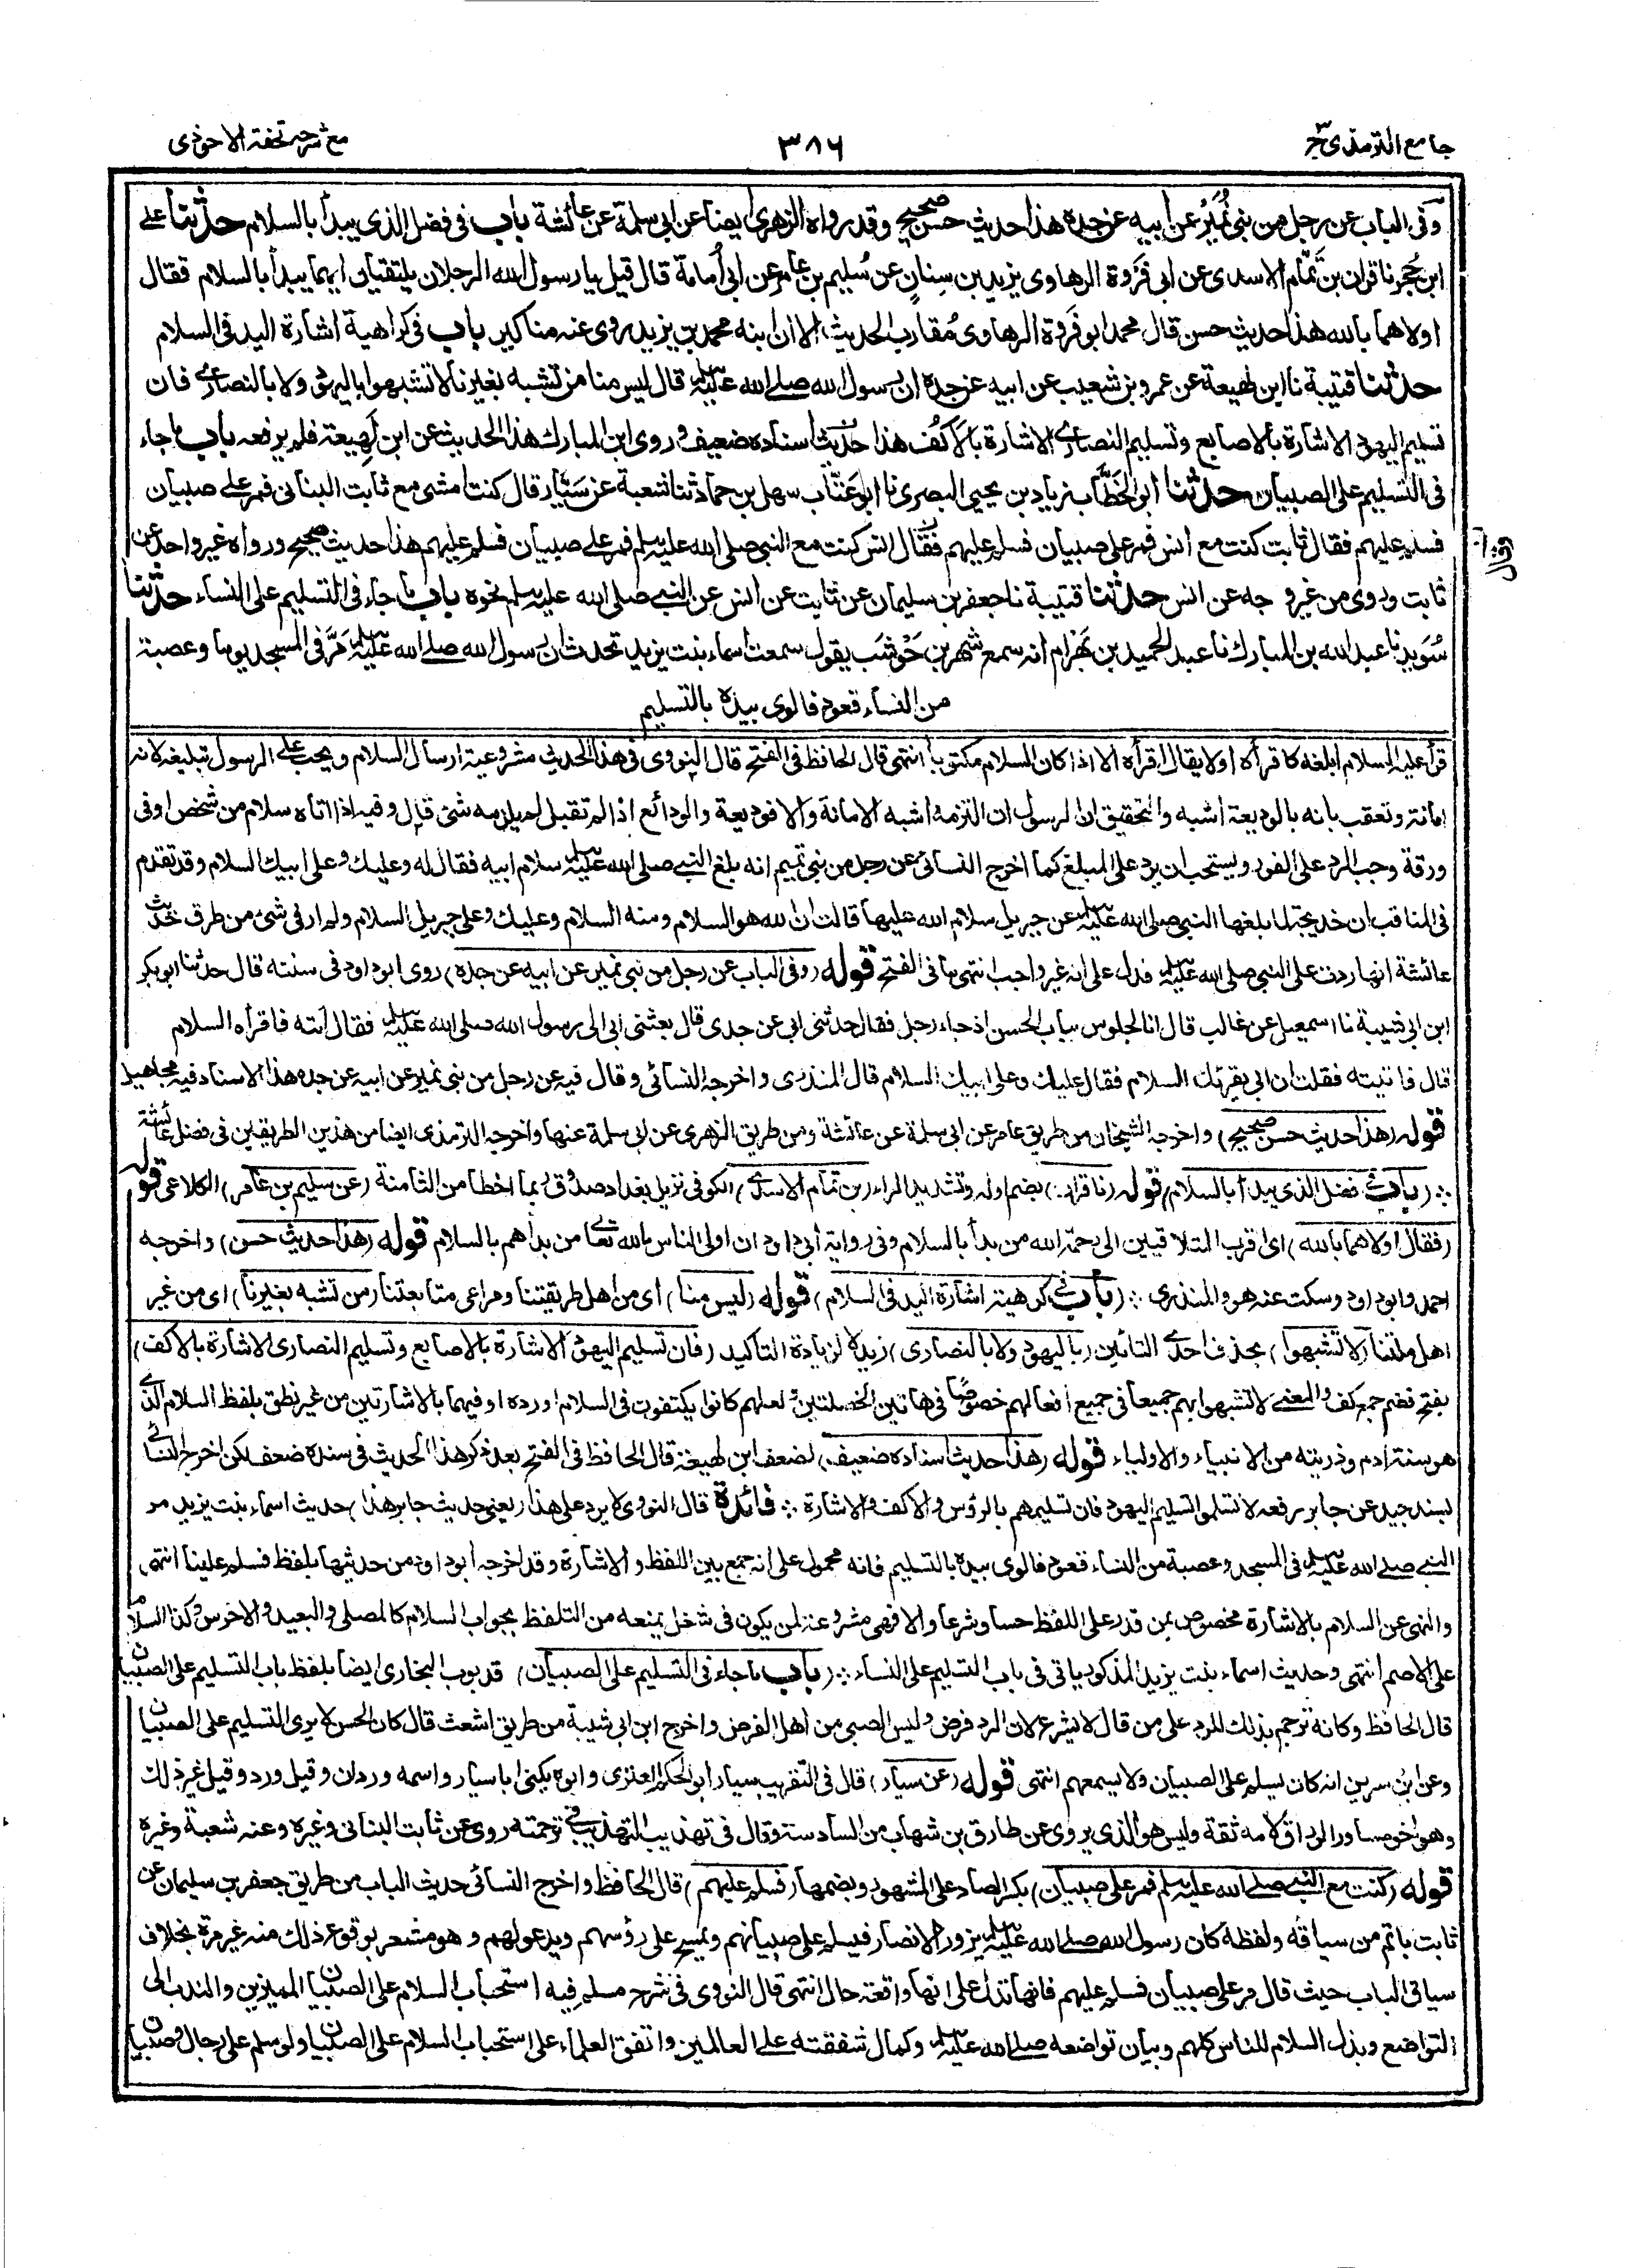 جامع الترمذى ج٣
٣٨٦
مع شرحه تحفة الاحوذى
وفى الباب عن رجل من بنى نُمَيْرٍ عن أبيه عن جده هذا حديث حسن صحيح وقد رواه الزهرى ايضا عن ابى سلمة عن عائشة باب فى فضل الذى يبدأ بالسلام حدثنا على
ابن حُجر نا قران بن تَمَّام الاسدى عن ابى فَرْوة الرهاوى يزيد بن سِنانٍ عن سُليم بن عامر عن ابى أُمامة قال قيل يا رسول الله الرجلان يلتقيان ايهما يبدأ بالسلام فقال
اولاهما بالله هذا حديث حسن قال محمد ابو فَروة الرهاوى مُقارب الحديث الا ان ابنه محمد بن يزيد روى عنه مناكير باب فى كراهية اشارة اليد فى السلام
حدثنا قتيبة نا ابن لهيعة عن عمرو بن شعيب عن ابيه عن جده ان رسول الله صلے الله عليه وسلم قال ليس منا من تشبه بغيرنا لا تشبهوا باليهود ولا بالنصارى فان
تسليم اليهود الاشارة بالاصابع وتسليم النصارى الاشارة بالاَكُف هذا حديث اسناده ضعيف وروى ابن المبارك هذا الحديث عن ابن لَهِيعة فلم يرفعه باب ما جاء
فى التسليم على الصبيان حدثنا ابو الخَطَّاب زياد بن يحيى البصرى نا ابو عَتَّاب سهل بن حماد ثنا شعبة عن سَيَّار قال كنت امشى مع ثابت البنانى فمر على صبيان
فسلم عليهم فقال ثابت كنت مع انس فمر على صبيان فسلم عليهم فقال انس كنت مع النبى صلى الله عليه وسلم فمر على صبيان فسلم عليهم هذا حديث صحيح ورواه غير واحد عن
ثابت وروى من غير وجه عن انس حدثنا قتيبة نا جعفر بن سليمان عن ثابت عن انس عن النبى صلى الله عليه وسلم نحوه باب ما جاء فى التسليم على النساء حدثنا
سُوَيد نا عبد الله بن المبارك نا عبد الحميد بن بَهْرام انه سمع شهر بن حَوْشَب يقول سمعت اسماء بنت يزيد تحدث ان رسول الله صلے الله عليه وسلم مَرَّ فى المسجد يوما وعصبة
من النساء قعود فالوى بيده بالتسليم
قرأ عليه السلام ابلغه كاقرأه اولا يقال اقرأه الا اذا كان السلام مكتوبا انتهى قال الحافظ فى الفتح قال النووى فى هذا الحديث مشروعية ارسال السلام ويجب على الرسول تبليغه لانه
امانة وتعقب بانه بالوديعة اشبه والتحقيق ان الرسول ان التزمه اشبه الامانة والا فوديعة والودائع اذا لم تقبل لم يلزمه شئ قال وفيه اذا اتاه سلام من شخص او فى
ورقة وجب الرد على الفور ويستحب ان يرد على المبلغ كما اخرج النسائى عن رجل من بنى تميم انه بلغ النبى صلى الله عليه وسلم سلام ابيه فقال له وعليك وعلى ابيك السلام وقد تقدم
فى المناقب ان خديجة لما بلغها النبى صلى الله عليه وسلم عن جبريل سلام الله عليها قالت ان الله هو السلام ومنه السلام وعليك وعلى جبريل السلام ولم ار فى شئ من طرق حديث
عائشة انها ردت على النبى صلى الله عليه وسلم فدل على انه غير واجب انتهى ما فى الفتح قوله (وفى الباب عن رجل من بنى نمير عن ابيه عن جده) روى ابو داود فى سننه قال حدثنا ابو بكر
ابن ابى شيبة نا اسمعيل عن غالب قال انا لجلوس بباب الحسن اذ جاء رجل فقال حدثنى ابى عن جدى قال بعثنى ابى الى رسول الله صلى الله عليه وسلم فقال ائته فاقرأه السلام
قال فاتيته فقلت ان ابى يقرئك السلام فقال عليك وعلى ابيك السلام قال المنذرى واخرجه النسائى وقال فيه عن رجل من بنى نمير عن ابيه عن جده هذا الاسناد فيه مجاهيل
قوله (هذا حديث حسن صحيح) واخرجه الشيخان من طريق عامر عن ابى سلمة عن عائشة ومن طريق الزهرى عن ابى سلمة عنها واخرجه الترمذى ايضا من هذين الطريقين فى فضل عائشة
(باب فى فضل الذى يبدأ بالسلام) قوله (نا قران) بضم اوله وتشديد الراء (بن تمام الاسدى) الكوفى نزيل بغداد صدوق ربما اخطأ من الثامنة (عن سليم بن عامر) الكلاعى قوله
(فقال اولاهما بالله) اى اقرب المتلاقيين الى رحمة الله من بدأ بالسلام وفى رواية أبى داود ان اولى الناس بالله تعالى من بدأهم بالسلام قوله (هذا حديث حسن) واخرجه
احمد وابو داود وسكت عنه هو والمنذرى (باب فى كراهية اشارة اليد فى السلام) قوله (ليس منا) اى من اهل طريقتنا ومراعى متابعتنا (من تشبه بغيرنا) اى من غير
اهل ملتنا (لا تشبهوا) بحذف احدى التائين (باليهود ولا بالنصارى) زيد لا لزيادة التاكيد (فان تسليم اليهود الاشارة بالاصابع وتسليم النصارى الاشارة بالاكف)
بفتح فضم جمع كف والمعنى لا تشبهوا بهم جميعا فى جميع افعالهم خصوصا فى هاتين الخصلتين لعلهم كانوا يكتفون فى السلام او رده او فيهما بالاشارتين من غير نطق بلفظ السلام الذى
هو سنة ادم وذريته من الانبياء والاولياء قوله (هذا حديث اسناده ضعيف) لضعف ابن لهيعة قال الحافظ فى الفتح بعد ذكر هذا الحديث فى سنده ضعف لكن اخرج النسائى
بسند جيد عن جابر رفعه لا تسلموا تسليم اليهود فان تسليمهم بالرؤس والاكف والاشارة فائدة قال النووى لا يرد على هذا (يعنى حديث جابر هذا) حديث اسماء بنت يزيد مر
النبى صلے الله عليه وسلم فى المسجد وعصبة من النساء قعود فالوى بيده بالتسليم فانه محمول على انه جمع بين اللفظ والاشارة وقد اخرجه ابو داود من حديثها بلفظ فسلم علينا انتهى
والنهى عن السلام بالاشارة مخصوص بمن قدر على اللفظ حسا وشرعا والا فهى مشروعة لمن يكون فى شغل يمنعه من التلفظ بجواب السلام كالمصلى والبعيد والاخرس وكذا السلام
على الاصم انتهى وحديث اسماء بنت يزيد المذكور ياتى فى باب التسليم على النساء (باب ما جاء فى التسليم على الصبيان) قد بوب البخارى ايضا بلفظ باب التسليم على الصبيان
قال الحافظ وكانه ترجم بذلك للرد على من قال لا يشرع لان الرد فرض وليس الصبى من اهل الفرض واخرج ابن ابى شيبة من طريق اشعث قال كان الحسن لا يرى التسليم على الصبيان
وعن ابن سيرين انه كان يسلم على الصبيان ولا يسمعهم انتهى قوله (عن سيار) قال فى التقريب سيار ابو الحكم العنزى وابوه يكنى ابا سيار واسمه وردان وقيل ورد وقيل غير ذلك
وهو اخو مساور الوراق لامه ثقة وليس هو الذى يروى عن طارق بن شهاب من السادسة وقال فى تهذيب التهذيب فى ترجمته روى عن ثابت البنانى وغيره وعنه شعبة وغيره
قوله (كنت مع النبى صلے الله عليه وسلم فمر على صبيان) بكسر الصاد على المشهور وبضمها (فسلم عليهم) قال الحافظ واخرج النسائى حديث الباب من طريق جعفر بن سليمان عن
ثابت باتم من سياقه ولفظه كان رسول الله صلے الله عليه وسلم يزور الانصار فيسلم على صبيانهم ويمسح على رؤسهم ويدعو لهم وهو مشعر بوقوع ذلك منه غير مرة بخلاف
سياق الباب حيث قال مر على صبيان فسلم عليهم فانها تدل على انها واقعة حال انتهى قال النووى فى شرح مسلم فيه استحباب السلام على الصبيان المميزين والندب الى
التواضع وبذل السلام للناس كلهم وبيان تواضعه صلے الله عليه وسلم وكمال شفقته على العالمين واتفق العلماء على استحباب السلام على الصبيان ولو سلم على رجال وصبيان